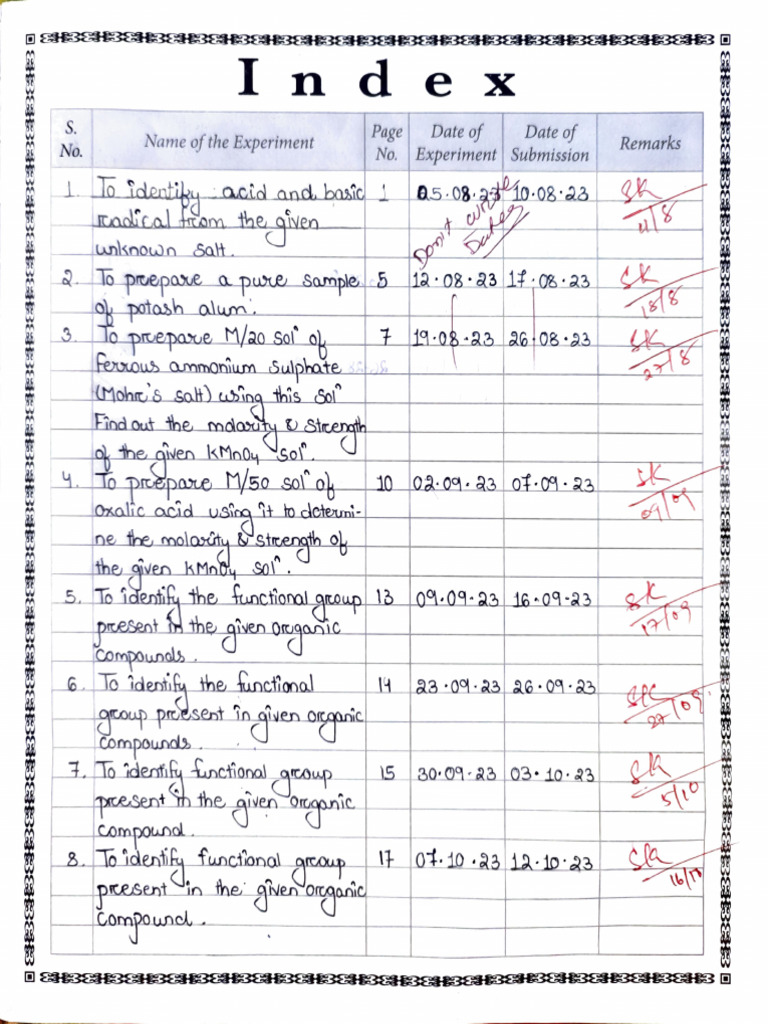 Index
S. No. Name of the Experiment Page No. Date of Experiment Date of Submission Remarks
1. To identify acid and basic 1 05.08.23 10.08.23 SK
radical from the given Don't write 11/8
unknown salt. Dates
2. To prepare a pure sample 5 12.08.23 17.08.23 SK
of potash alum. 18/8
3. To prepare M/20 solⁿ of 7 19.08.23 26.08.23 SK
ferrous ammonium sulphate 27/8
(Mohr's salt) using this solⁿ
Find out the molarity & strength
of the given KMnO₄ solⁿ.
4. To prepare M/50 solⁿ of 10 02.09.23 07.09.23 SK
oxalic acid using it to determi- 09/09
ne the molarity & strength of
the given KMnO₄ solⁿ.
5. To identify the functional group 13 09.09.23 16.09.23 SK
present in the given organic 17/09
compounds.
6. To identify the functional 14 23.09.23 26.09.23 SK
group present in given organic 27/09
compounds.
7. To identify functional group 15 30.09.23 03.10.23 SK
present in the given organic 5/10
compound.
8. To identify functional group 17 07.10.23 12.10.23 SK
present in the given organic 16/10
compound.